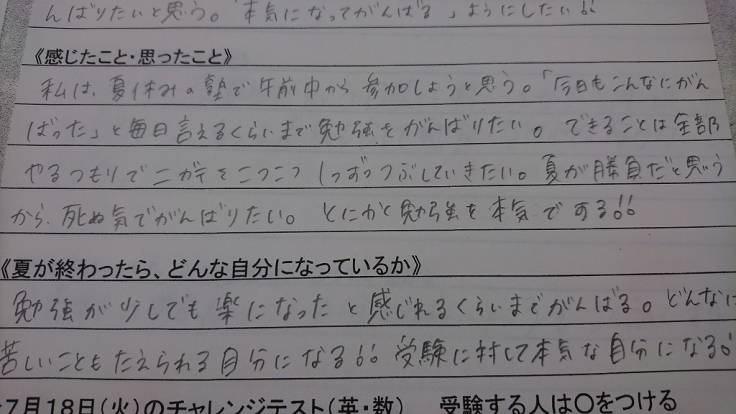 んばりたいと思う。「本気になってがんばる」ようにしたい!!
《感じたこと・思ったこと》
私は、夏休みの塾で午前中から参加しようと思う。「今日もこんなにがん
ばった」と毎日言えるくらいまで勉強をがんばりたい。できることは全部
やるつもりでニガテをコツコツ1つずつつぶしていきたい。夏が勝負だと思う
から、死ぬ気でがんばりたい。とにかく勉強を本気でする!!
《夏が終わったら、どんな自分になっているか》
勉強が少しでも楽になったと感じれるくらいまでがんばる。どんなに
苦しいこともたえられる自分になる!!受験に対して本気な自分になる!
7月18日(火)のチャレンジテスト(英・数) 受験する人は○をつける